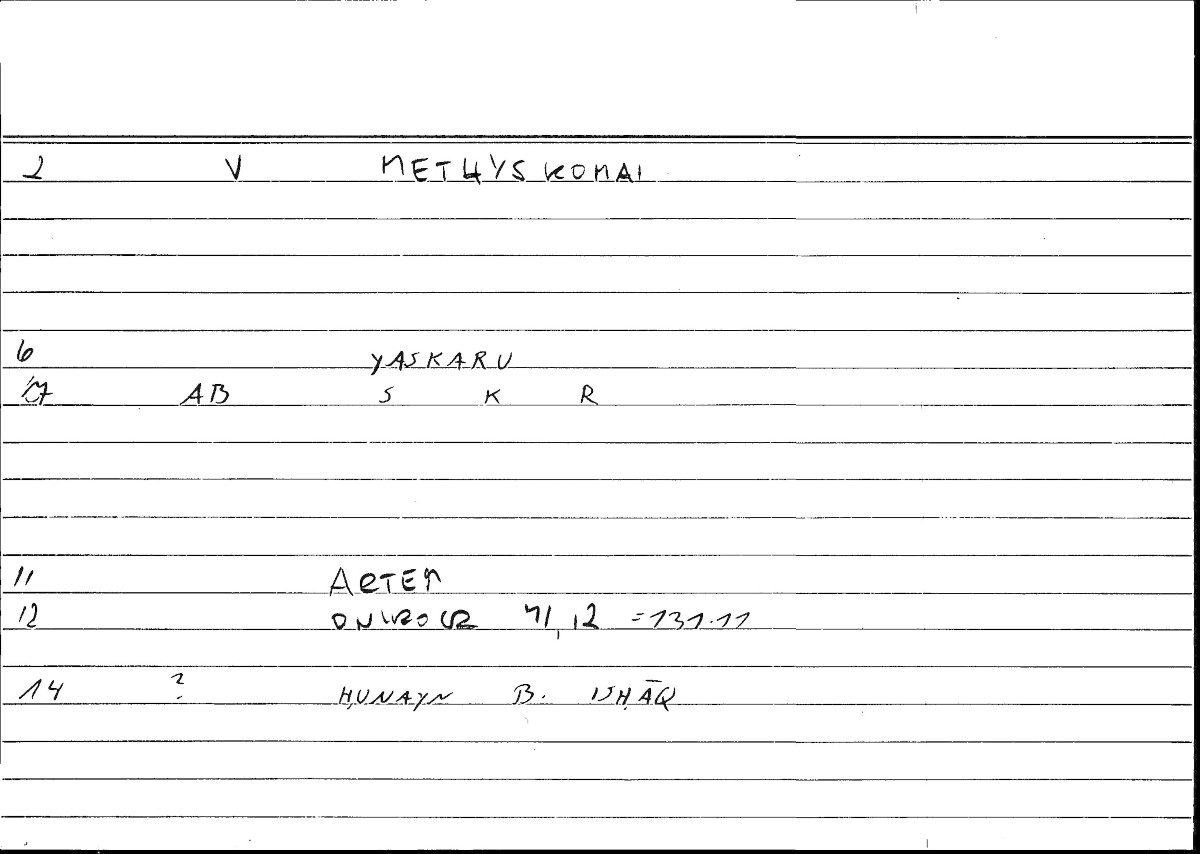 2 V METHYSKOMAI
6 YASKARU
7 AB S K R
11 ARTEM
12 ONIROCR 41,12 =131.11
14 ? ḤUNAYN B. ISḤĀQ